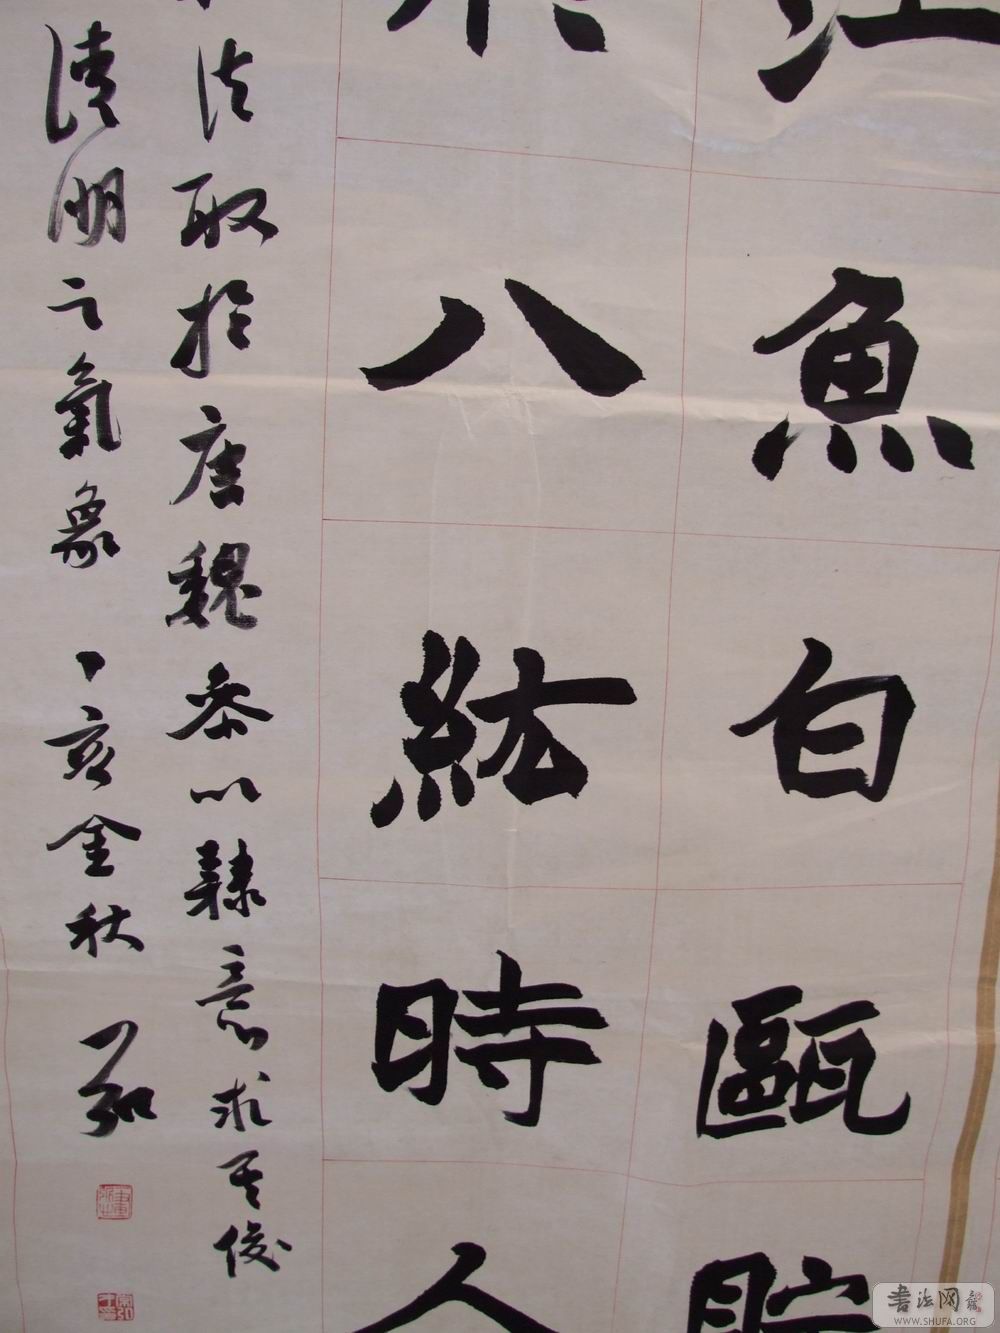 江魚白甌貯
八紘時人
法取於唐魏參以隸意求其俊
清朗之氣象 丁亥金秋
書法网
WWW.SHUFA.ORG